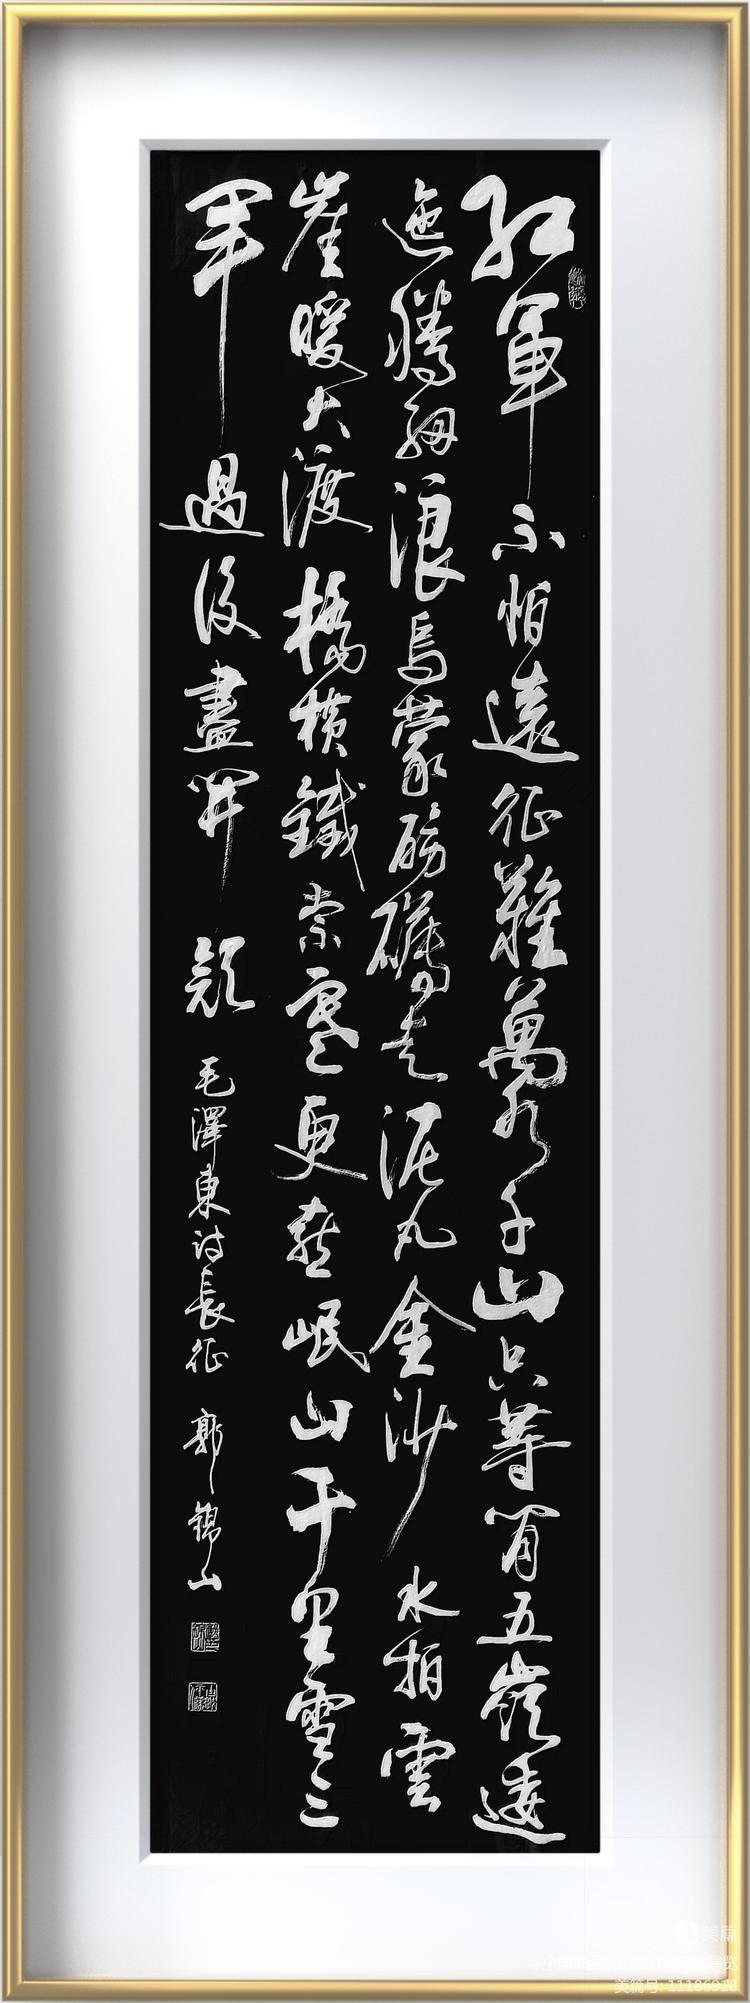 紅軍不怕遠征難萬水千山只等閒五嶺逶
迤騰細浪烏蒙磅礴走泥丸金沙水拍雲
崖暖大渡橋橫鐵索寒更喜岷山千里雪三
軍過後盡開顏 毛澤東詩長征 郭錦山
美篇
美篇号: 11186918